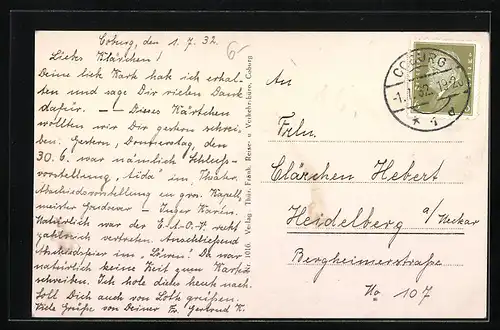 Coburg, den 1.7.32.
6-
Liebes Klärchen!
Deine lieb. Kart hab ich erhal-
ten und sage Dir vielen Dank
dafür. — Dieses Kärtchen
wollten wir Dir gestern schrei-
ben. Gestern, Donnerstag, den
30.6. war nämlich Schluß-
vorstellung „Aida" im Theater.
Abschiedsvorstellung
meister
Natürlich war der
zahlreich vertreten. Anschließend
Abschiedsfeier im „Löwen". Da war
natürlich keine Zeit zum Karte
schreiben. Ich hole dies heut nach.
Soll Dich auch von Loth grüßen.
Viele Grüße von Deiner Fr. Gertrud K.
Nr. 1010. Verlag Thür. Fränk. Reise- u. Verkehrsbüro, Coburg
COBURG
An
Frln.
Clärchen Hebert
Heidelberg a/Neckar
Bergheimerstraße
No 107